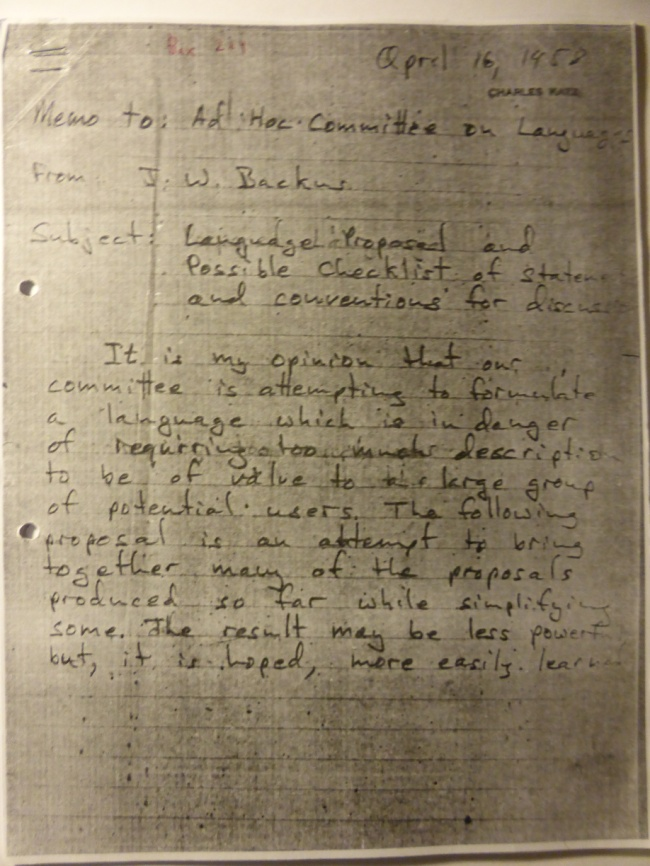 April 16, 1958
CHARLES KATZ
Memo to: Ad Hoc Committee on Languages
From J. W. Backus
Subject: Language Proposed and
Possible Checklist of statem
and conventions for discus
It is my opinion that our
committee is attempting to formulate
a language which is in danger
of requiring too much description
to be of value to a large group
of potential users. The following
proposal is an attempt to bring
together many of the proposals
produced so far while simplifying
some. The result may be less powerf
but, it is hoped, more easily learn